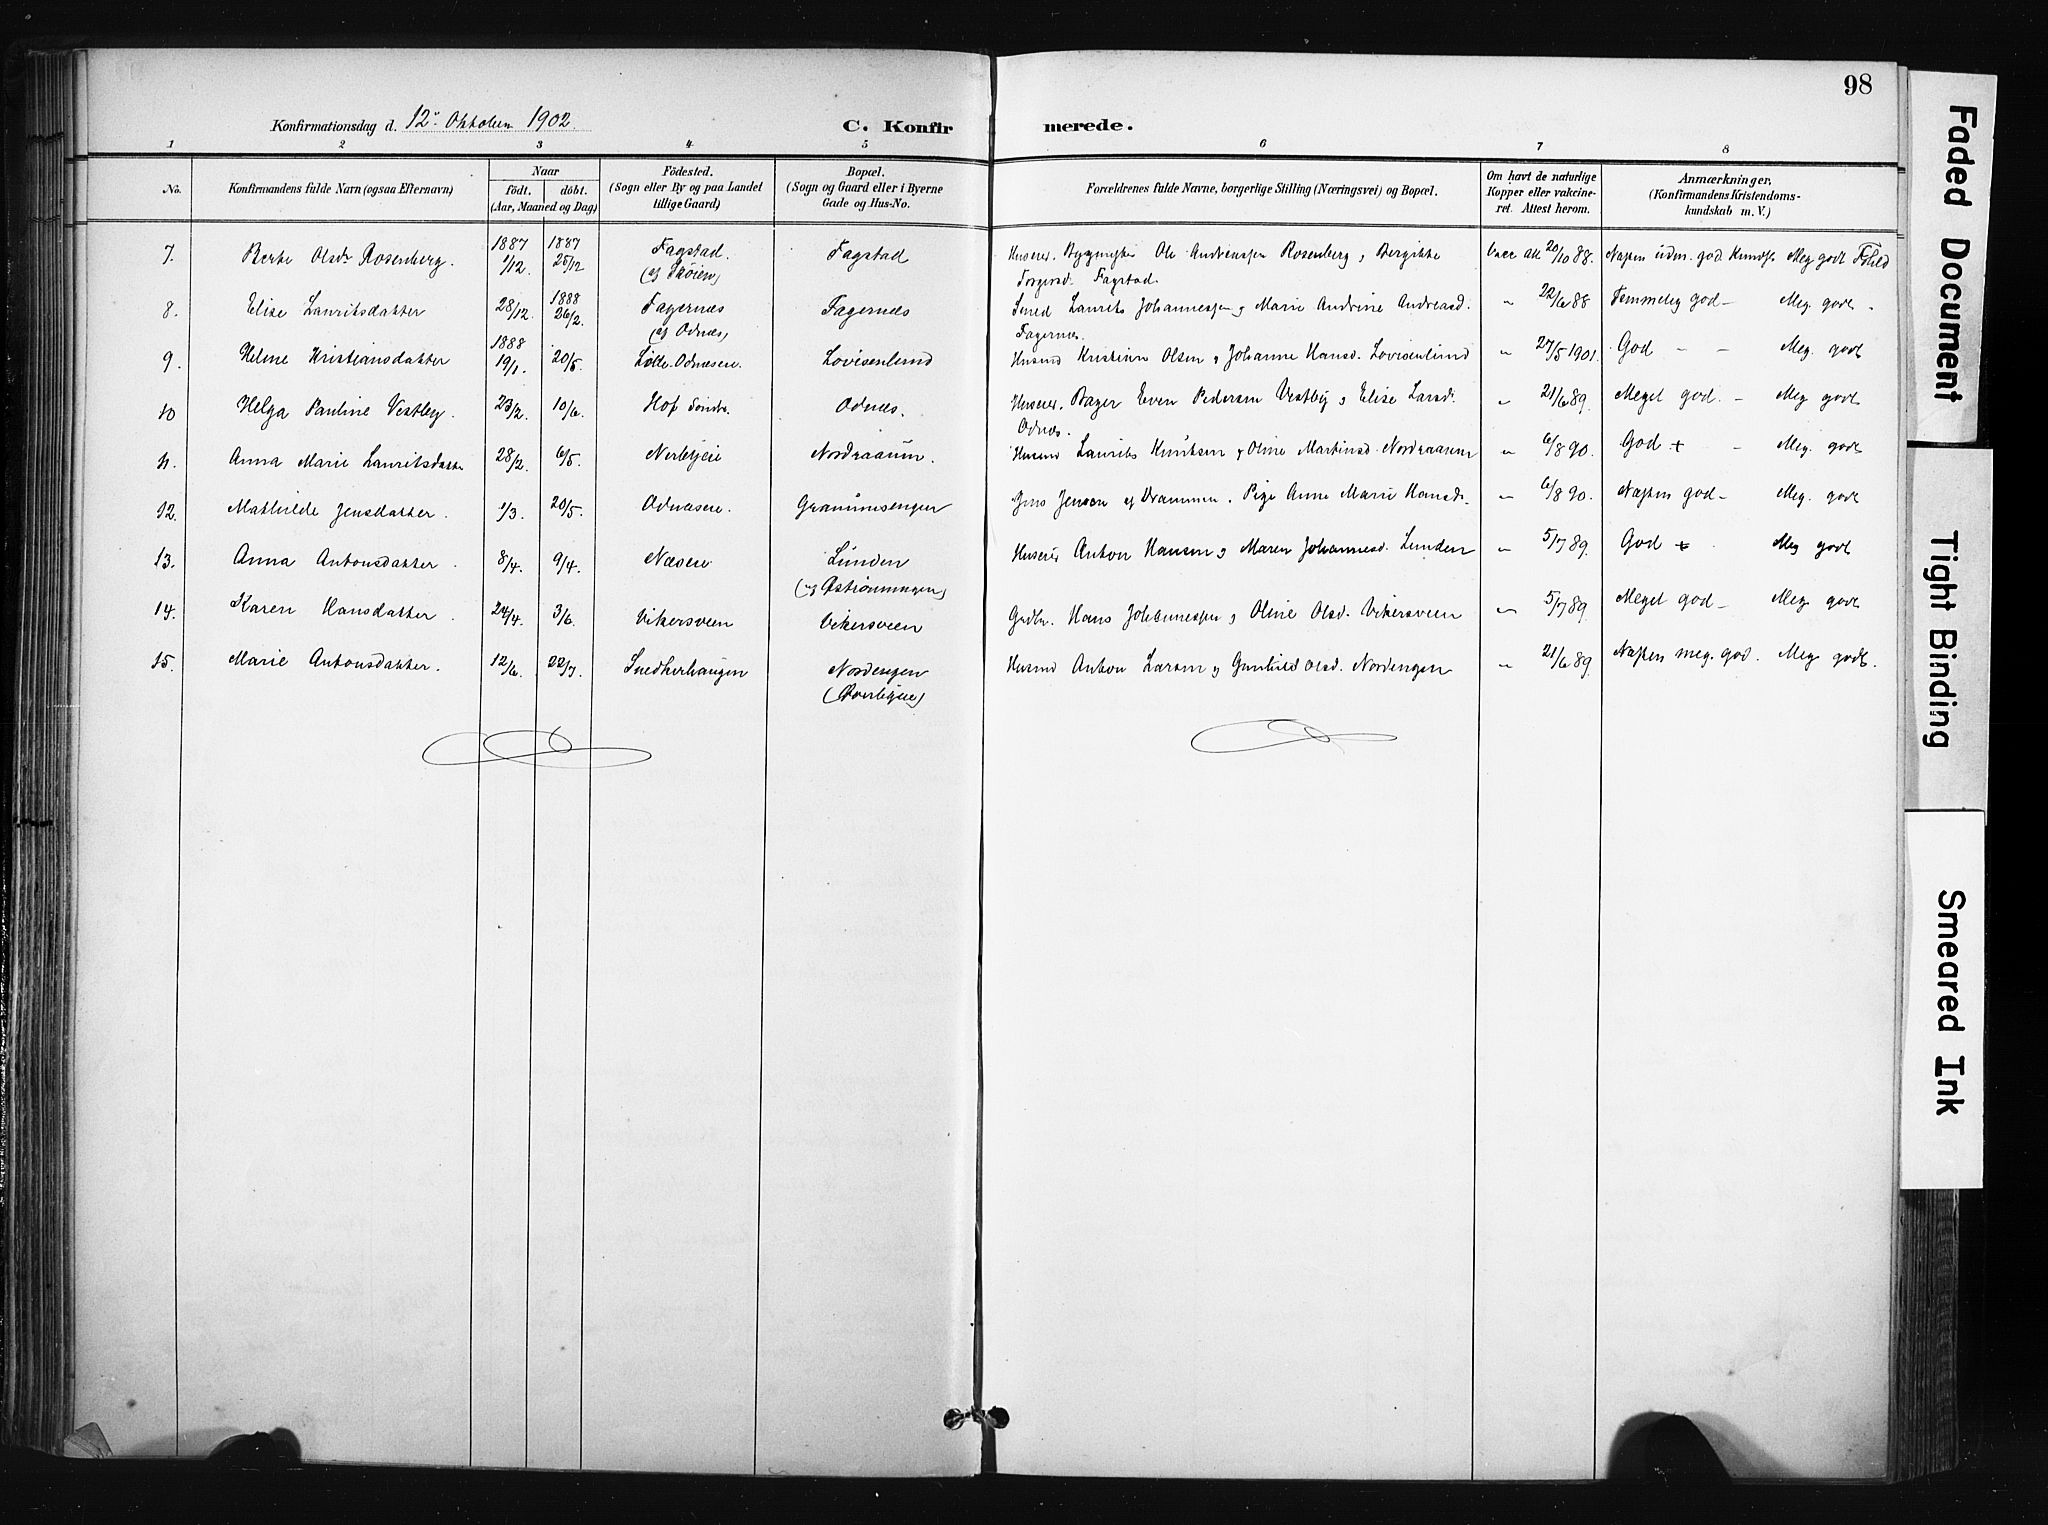 98
Konfirmationsdag d. 12te Oktober 1902. C. Konfir merede.
1 2 3 4 5 6 7 8
No. Konfirmandens fulde Navn (ogsaa Efternavn) Naar født. døbt. (Aar, Maaned og Dag) Fødested. (Sogn eller By og paa Landet tillige Gaard) Bopæl. (Sogn og Gaard eller i Byerne Gade og Hus-No. Forældrenes fulde Navne, borgerlige Stilling (Næringsvei) og Bopæl. Om havt de naturlige Kopper eller vakcineret. Attest herom. Anmærkninger, (Konfirmandens Kristendomskundskab m. V.)
7. Berte Olsdr Rosenberg. 1887 1/12 1887 25/12 Fagstad. (af Skøien) Fagstad Huseier. Ole Andreassen Rosenberg, Bergitte Torgersd. Fagstad. Vacc. att. 20/10 88. Meg godt Forhold
8. Elise Lauritsdatter 28/12. 1888 26/2. Fagernæs (af Odnæs) Fagernæs Smed Laurits Johannessen, Marie Andrine Andreasd. Fagernæs. " 22/6 88 Temmelig god - Meg. godt.
9. Helene Kristiansdatter 1888 19/1. 20/5. Lille-Odnæseie. Lovisenlund Husmd Kristian Olsen, Johanne Hansd. Lovisenlund " 27/5 1901. God - - Meg. godt
10 Helga Pauline Vestby. 23/2. 10/6. Hof Søndre. Odnæs. Huseier. Bager Even Pedersen Vestby, Elise Larsd. Odnæs. " 21/6 89. Meget god. - Meg godt
11. Anna Marie Lauritsdatter 28/2. 6/5. Nerbyeie Nordraaum. Husmd Laurits Knutsen, Oline Martinsd. Nordraaum " 6/8 90. God + - Meg. godt
12. Mathilde Jensdatter. 1/3. 20/5. Odnæseie. Graumsengen Jens Jensen af Drammen. Pige Anne Marie Hansdr. " 6/8 90. Næsten god - Meg. godt
13. Anna Antonsdatter. 8/4. 9/4. Næseie Lunden Huseier Anton Hansen, Maren Johannesd. Lunden " 5/7 89. God + Meg godt
14. Karen Hansdatter. 24/4. 3/6. Vikersveen Vikersveen Grdbr. Hans Johannessen, Oline Olsd. Vikersveen " 5/7 89. Meget god - Meg. godt
15. Marie Antonsdatter. 12/6. 22/7. Snedkerhaugen Nordengen Husmd Anton Larsen, Gunhild Olsd. Nordengen " 21/6 89. Næsten meg. god. Meg godt.
Faded Document
Tight Binding
Smeared Ink